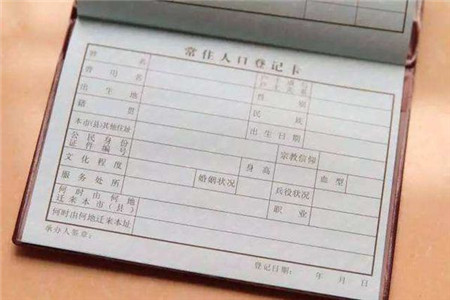 常住人口登记卡
姓名
户主或与户主关系
曾用名 性别
出生地 民族
籍贯 出生日期
本市(县)其他住址 宗教信仰
公民身份证件编号 身高 血型
文化程度 婚姻状况 兵役状况
服务处所 职业
何时由何地迁来本市(县)
何时由何地迁来本址
承办人签章: 登记日期: 年 月 日